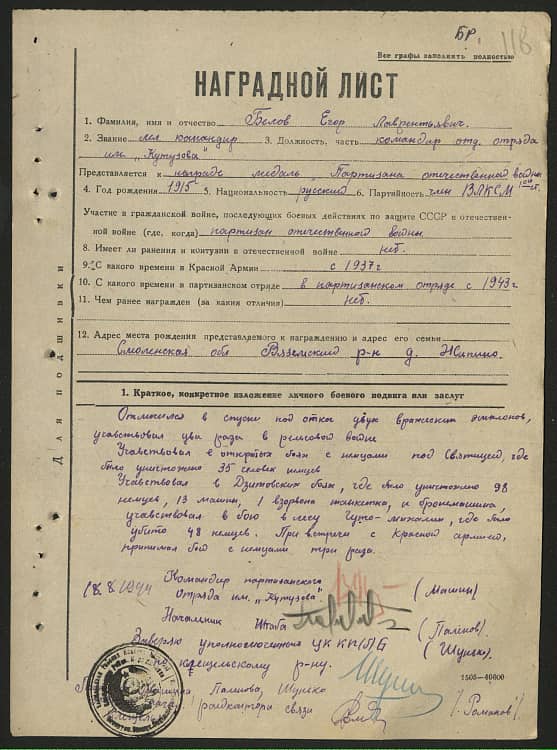 БР.
118
Все графы заполнить полностью
НАГРАДНОЙ ЛИСТ
1. Фамилия, имя и отчество Белов Егор Лаврентьевич.
2. Звание мл. командир 3. Должность, часть командир отд. отряда
им. „Кутузова"
Представляется к награде медаль „Партизана отечественной войны
4. Год рождения 1915 5. Национальность русский 6. Партийность член ВЛКСМ
Участие в гражданской войне, последующих боевых действиях по защите СССР и отечествен-
ной войне (где, когда) партизан отечественной войны
8. Имеет ли ранения и контузии в отечественной войне нет.
9. С какого времени в Красной Армии с 1937 г
10. С какого времени в партизанском отряде в партизанском отряде с 1943 г
11. Чем ранее награжден (за какия отличия) нет.
12. Адрес места рождения представляемого к награждению и адрес его семьи
Смоленская обл Вяземский р-н д.
Для подшивки
1. Краткое, конкретное изложение личного боевого подвига или заслуг
Отличился в спуски под откос двух вражеских эшалонов,
учавствовал два раза в рельсовой войне
Учавствовал в открытых боях с немцами под Святицей, где
было уничтожено 35 человек немцев
Учавствовал в Дзитовских боях, где было уничтожено 98
немцев, 13 машин, 1 взорвена танкетка, и бронемашина,
учавствовал в бою в лесу где было
убито 48 немцев. При встречи с Красной армией,
принимал бой с немцами три раза.
18/8 1944
Командир партизанского
Отряда им. „Кутузова" (Машин)
Начальник Штаба (Палков)
Заверяю уполномоченый ЦК КП(б)Б (Шунско).
по р-ну.
1505-40000
Палкова, Шунско
связи /. Романов /